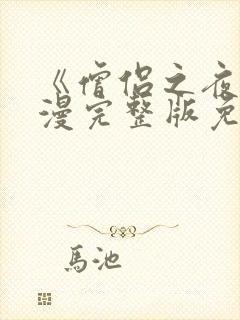 《僧侣之夜
漫完整版免
馬池